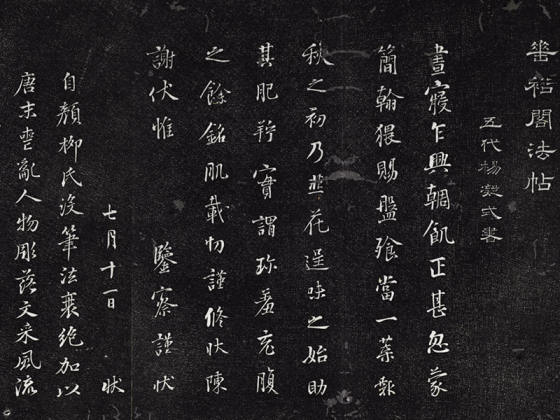 華袺閣法帖
五代楊凝式書
晝寢乍興輖飢正甚忽蒙
簡翰猥賜盤飧當一葉報
秋之初乃韭花逞味之始助
其肥羜實謂珎羞充腹
之餘銘肌載切謹脩狀陳
謝伏惟 鑒察謹狀
七月十一日 狀
自顏柳氏沒筆法衰絕加以
唐末喪亂人物彫落文采風流